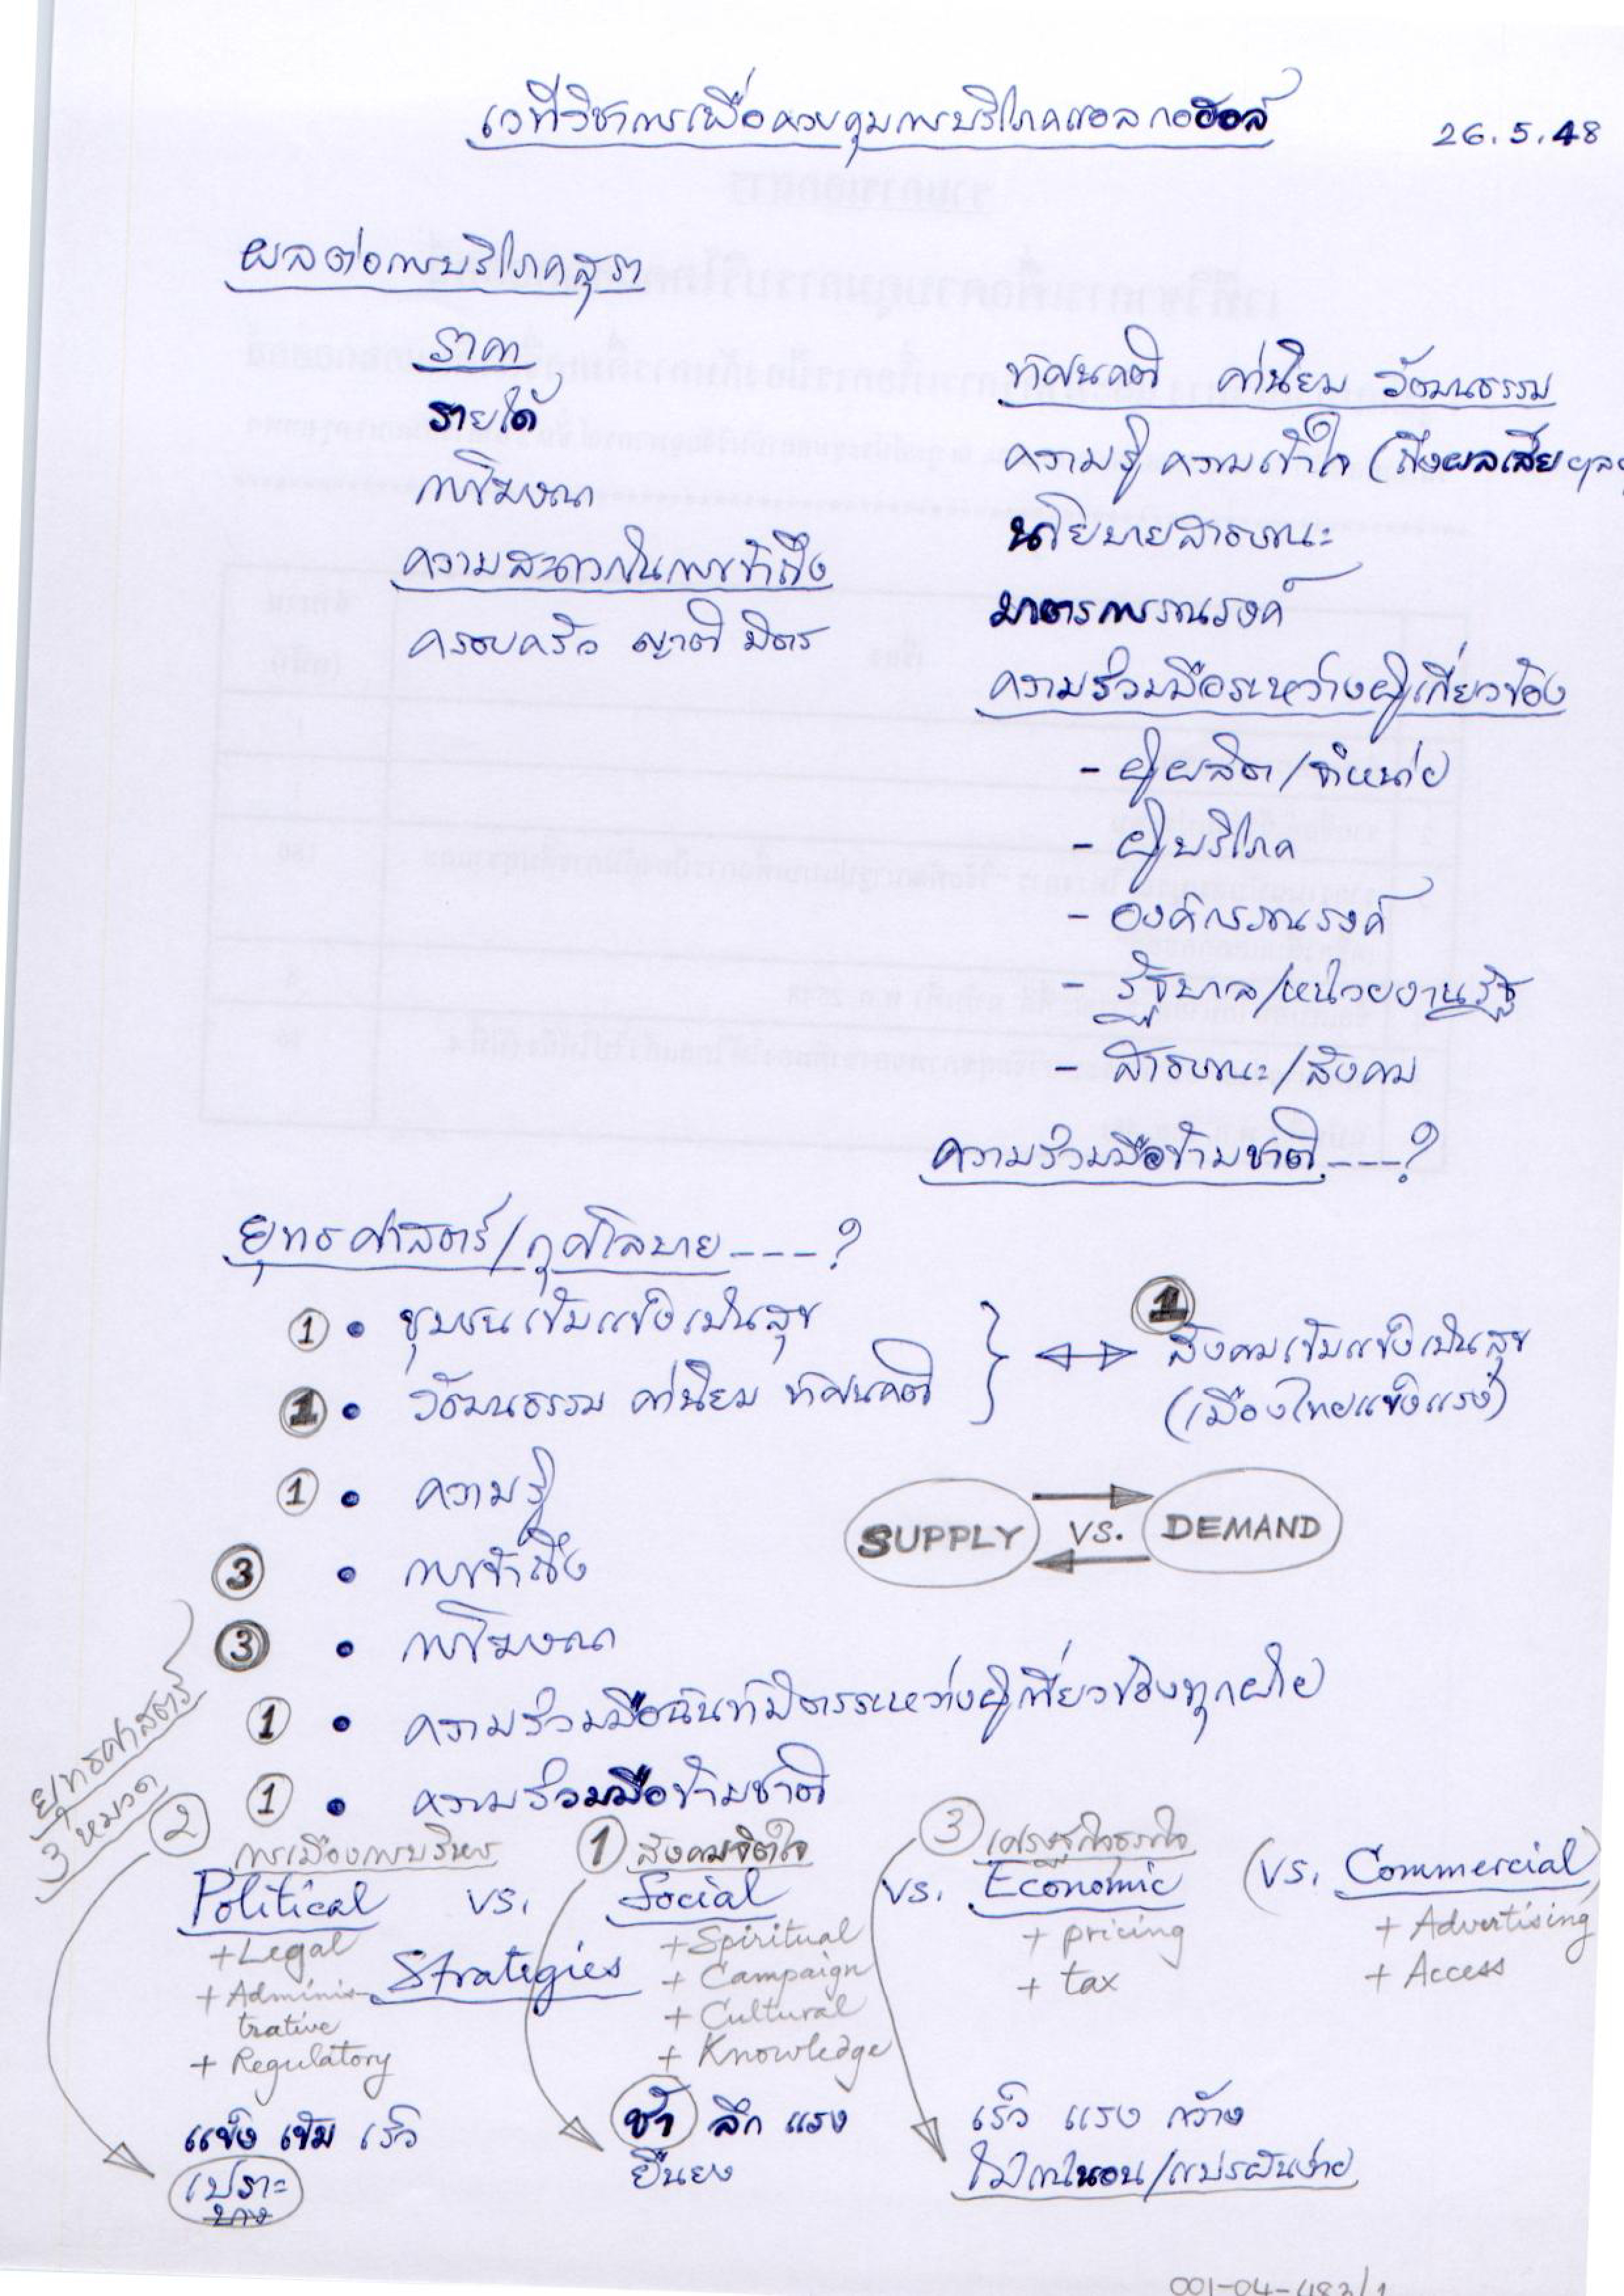 เวทีวิชาการเพื่อควบคุมการบริโภคแอลกอฮอล์
26.5.48
ผลต่อการบริโภคสุรา
ราคา
รายได้
การโฆษณา
ความสะดวกในการเข้าถึง
ครอบครัว ญาติ มิตร
ทัศนคติ ค่านิยม วัฒนธรรม
ความรู้ ความเข้าใจ (ถึงผลเสีย
นโยบายสาธารณะ
มาตรการรณรงค์
ความร่วมมือระหว่างผู้เกี่ยวข้อง
- ผู้ผลิต/จำหน่าย
- ผู้บริโภค
- องค์กรรณรงค์
- รัฐบาล/หน่วยงานรัฐ
- สาธารณะ/สังคม
ความร่วมมือข้ามชาติ ----?
ยุทธศาสตร์/กุศโลบาย ----?
① • ชุมชนเข้มแข็งเป็นสุข
① • วัฒนธรรม ค่านิยม ทัศนคติ
①
สังคมเข้มแข็งเป็นสุข
(เมืองไทยแข็งแรง)
① • ความรู้
SUPPLY VS. DEMAND
③ • การเข้าถึง
③ • การโฆษณา
① • ความร่วมมือฉันท์มิตรระหว่างผู้เกี่ยวข้องทุกฝ่าย
① • ความร่วมมือข้ามชาติ
ยุทธศาสตร์
3 หมวด
② การเมืองการบริหาร
① สังคมจิตใจ
③ เศรษฐกิจธุรกิจ
Political vs. Social vs. Economic (vs. Commercial)
Strategies
+ Legal
+ Adminis-
trative
+ Regulatory
+ Spiritual
+ Campaign
+ Cultural
+ Knowledge
+ pricing
+ tax
+ Advertising
+ Access
แข็ง เข้ม เร็ว
เปราะ
บาง
ช้า ลึก แรง
ยืนยง
เร็ว แรง กว้าง
ไม่แน่นอน/แปรผันง่าย
001-04-483/1